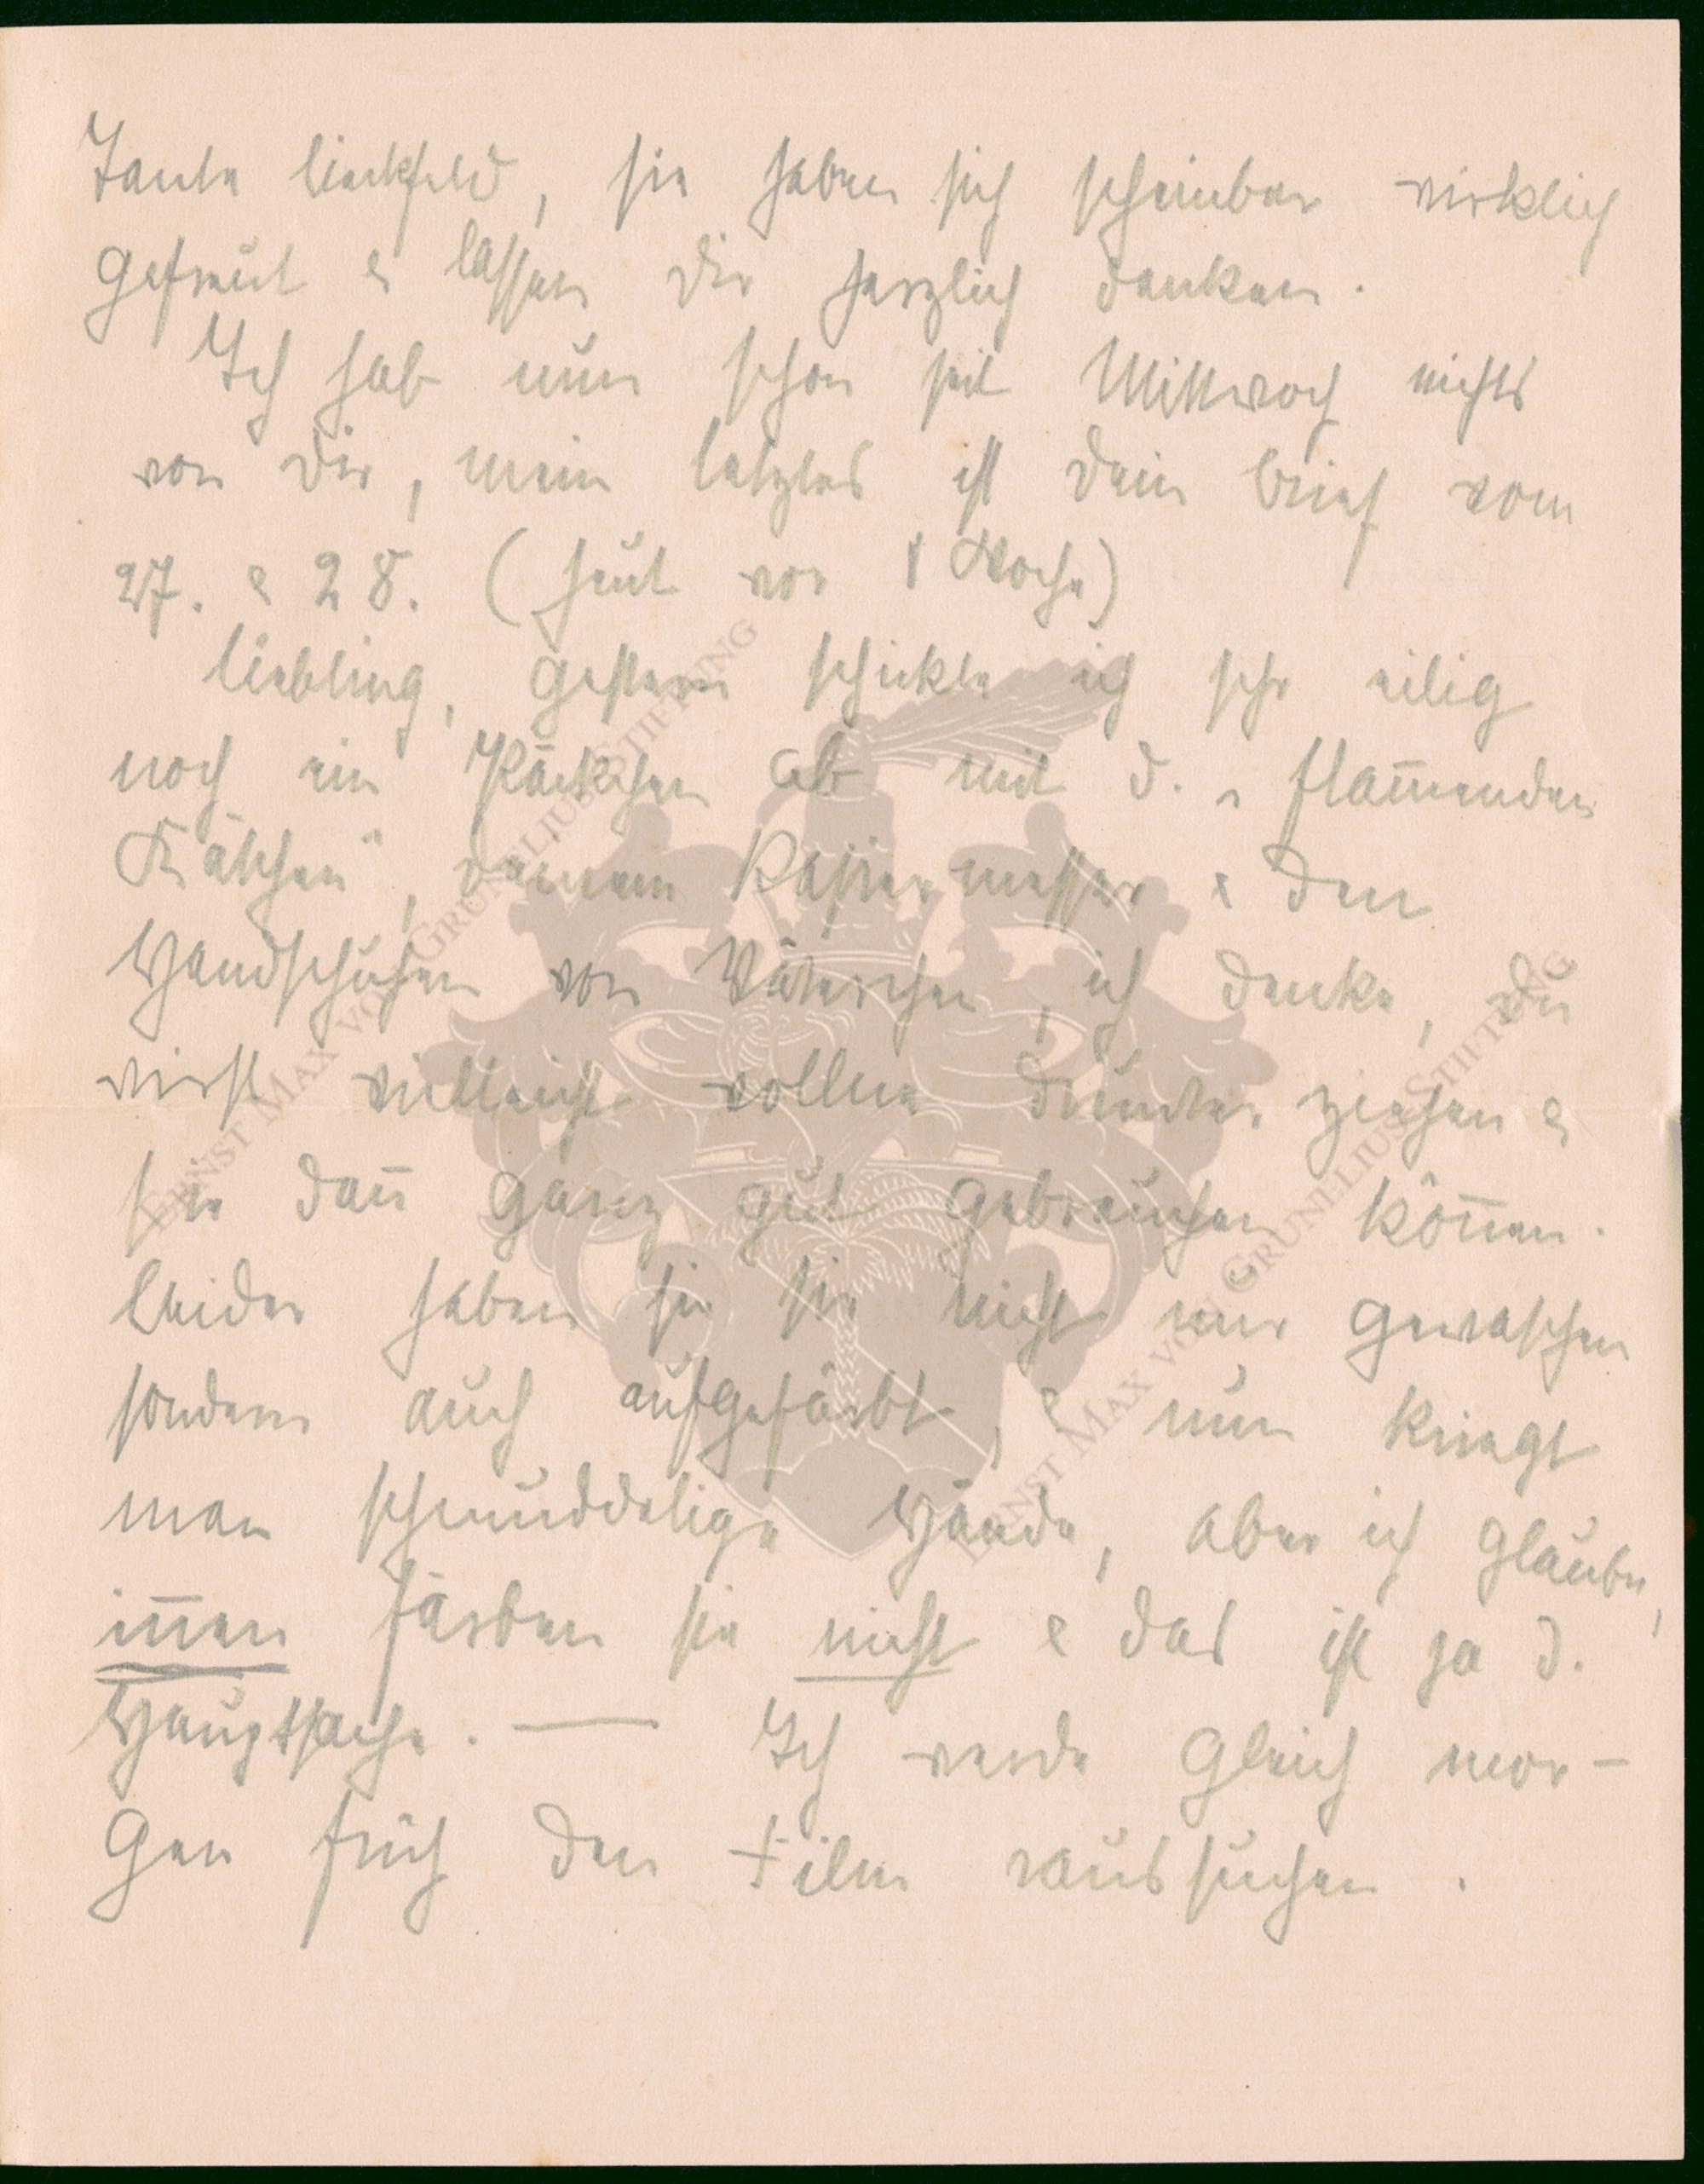 Tante Lieckfeld, sie haben sich scheinbar wirklich
gefreut & lassen Dir herzlich danken.
Ich hab nun schon seit Mittwoch nichts
von Dir, mein letztes ist Dein Brief vom
27. & 28. (heut vor 1 Woche)
Liebling, gestern schickte ich sehr eilig
noch ein Päckchen ab mit d. „flam̅enden
Kätchen", Deinem Rasiermesser & den
Handschuhen von Väterchen, ich denke, Du
wirst vielleicht wollne drunter ziehen &
sie dan̅ ganz gut gebrauchen kön̅en.
Leider haben sie sie nicht nur gewaschen
sondern auch aufgefärbt, & nun kriegt
man schmuddelige Hände, aber ich glaube,
in̅en färben sie nicht & das ist ja d.
Hauptsache. — Ich werde gleich mor-
gen früh den Film raussuchen.
ERNST MAX VON GRUNELIUS STIFTUNG
ERNST MAX VON GRUNELIUS STIFTUNG